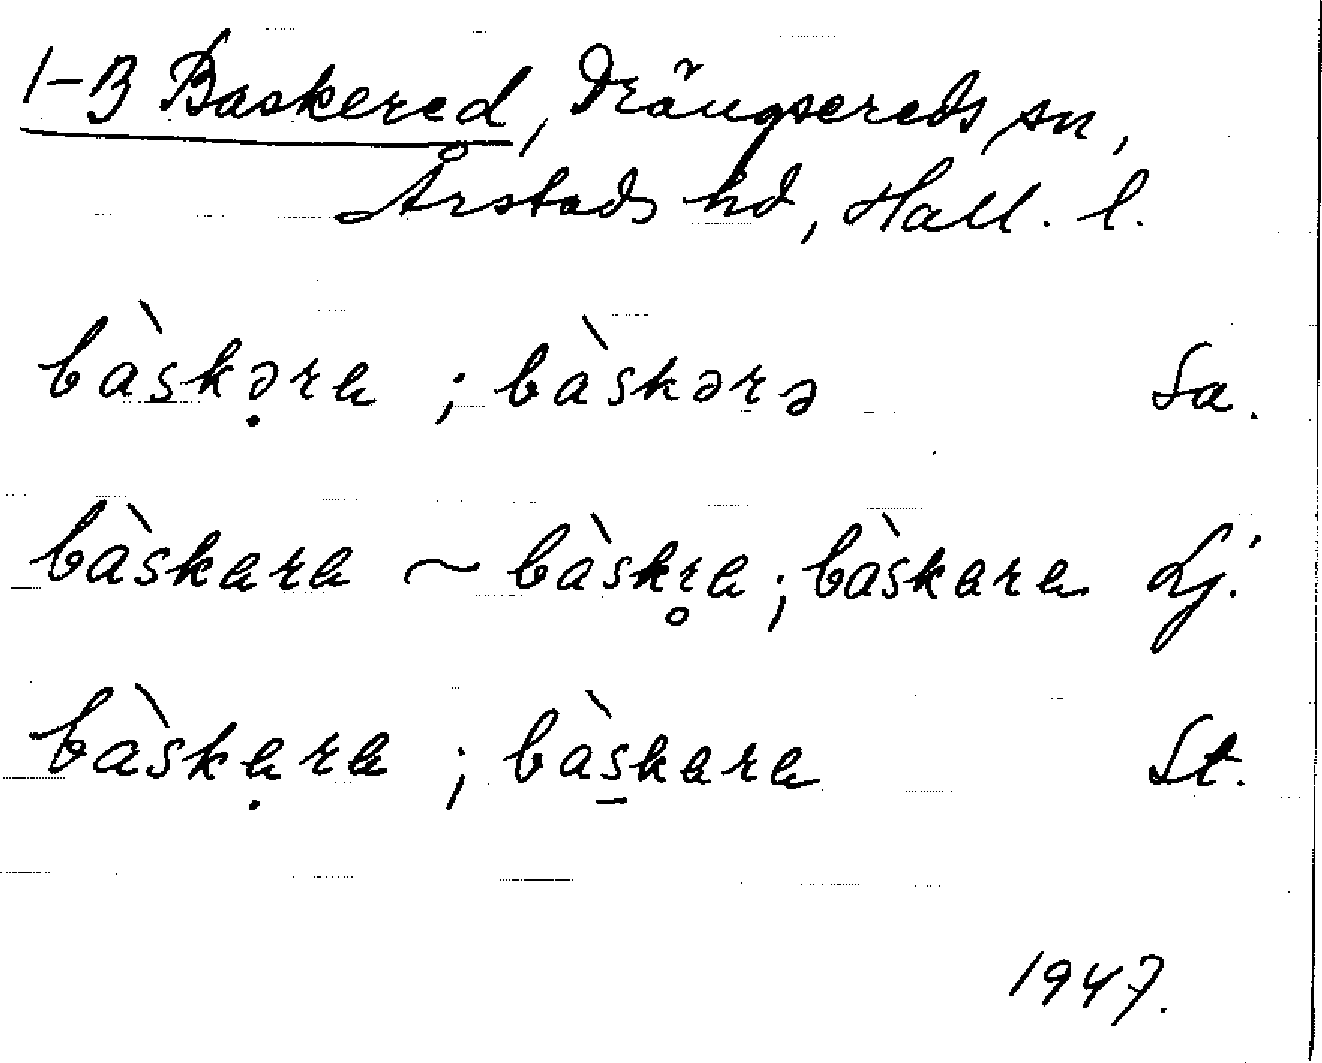 1-3 Baskered, Drängsereds sn,
Årstads hd, Hall. l.
bàskə̣ra ; bàskərə Sa.
bàskara ~ bàskr̥a ; bàskara Lj.
bàskạra ; bàs̱kara St.
1947.